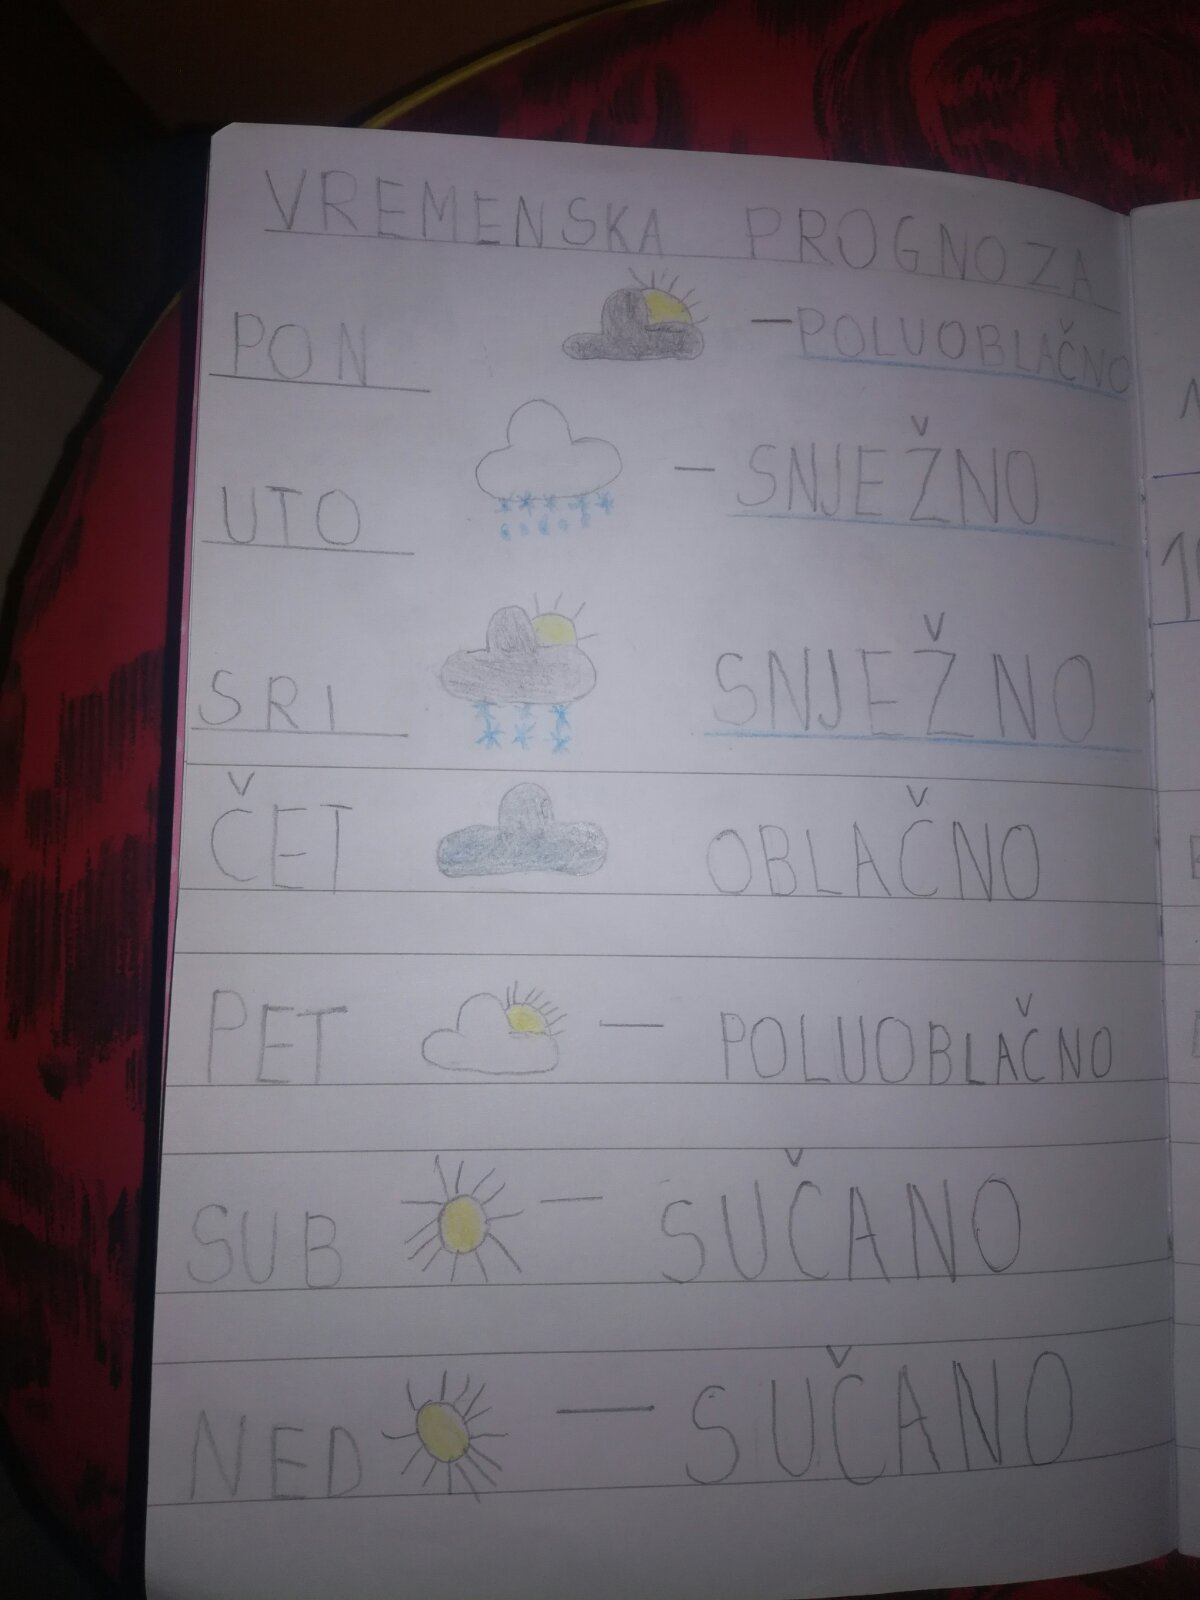 VREMENSKA PROGNOZA
PON -POLUOBLAČNO
UTO - SNJEŽNO
SRI SNJEŽNO
ČET OBLAČNO
PET - POLUOBLAČNO
SUB - SUČANO
NED - SUČANO